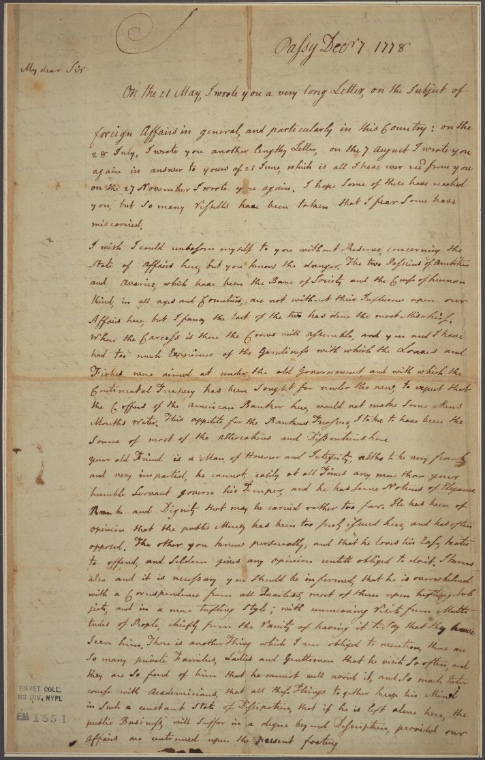 Passy Decr 7 1778
My dear Sir
On the 21 May, I wrote you a very long Letter, on the Subject of
foreign Affairs in general, and particularly in this Country: on the
28 July, I wrote you another lengthy Letter, on the 7 August I wrote you
again in answer to yours of 21 June, which is all I have ever recd from you
on the 27 November I wrote you again. I hope Some of these have reached
you, but So many Vessells have been taken that I fear Some have
miscarried.
I wish I could unbosom myself to you without Reserve concerning the
State of Affairs here, but you know the danger. The two Passions of Ambition
and Avarice, which have been the Bane of Society and the Curse of human
Kind, in all ages and Countries, are not without their Influence upon our
Affairs here, but I fancy the last of the two has done the most Mischief.
Where the Carcass is there the Crows will assemble, and you and I have
had too much Experience of the Greediness with which the Loaves and
Fishes were aimed at under the old Government, and with which the
Continental Treasury has been Sought for under the new, to expect that
the Coffers of the American Banker here, would not make Some Mens
Mouths Water. This appetite for the Bankers Treasure, I take to have been the
Source of most of the altercations and Dissentions here
your old Friend is a Man of Honour and Integrity, altho to be very frank
and very impartial, he cannot easily at all Times any more than your
humble Servant govern his Temper, and he has Some Notions of Elegance
Rank and Dignity that may be carried rather too far. He has been of
opinion that the public Money has been too freely issued here, and has often
opposed. The other you know personally, and that he loves his Ease, hates
to offend, and Seldom gives any opinion untill obliged to do it. I know
also and it is necessary you should be informed, that he is overwhelmed
with a Correspondence from all Quarters, most of them upon trifling Sub
jects, and in a more trifling Style; with unmeaning Visits from Multi
tudes of People, chiefly from the Vanity of having it to Say that they have
Seen him. There is another Thing which I am obliged to mention, there are
So many private Families, Ladies and Gentlemen that he visits So often, and
they are So fond of him that he cannot well avoid it, and So much Inter
course with Academicians, that all these Things together keep his Mind
in Such a constant State of Dissipation, that if he is left alone here, the
public Business, will Suffer in a degree beyond Description, provided our
Affairs are continued upon the present footing
EMMET COLL.
MS DIV. NYPL
EM 1551